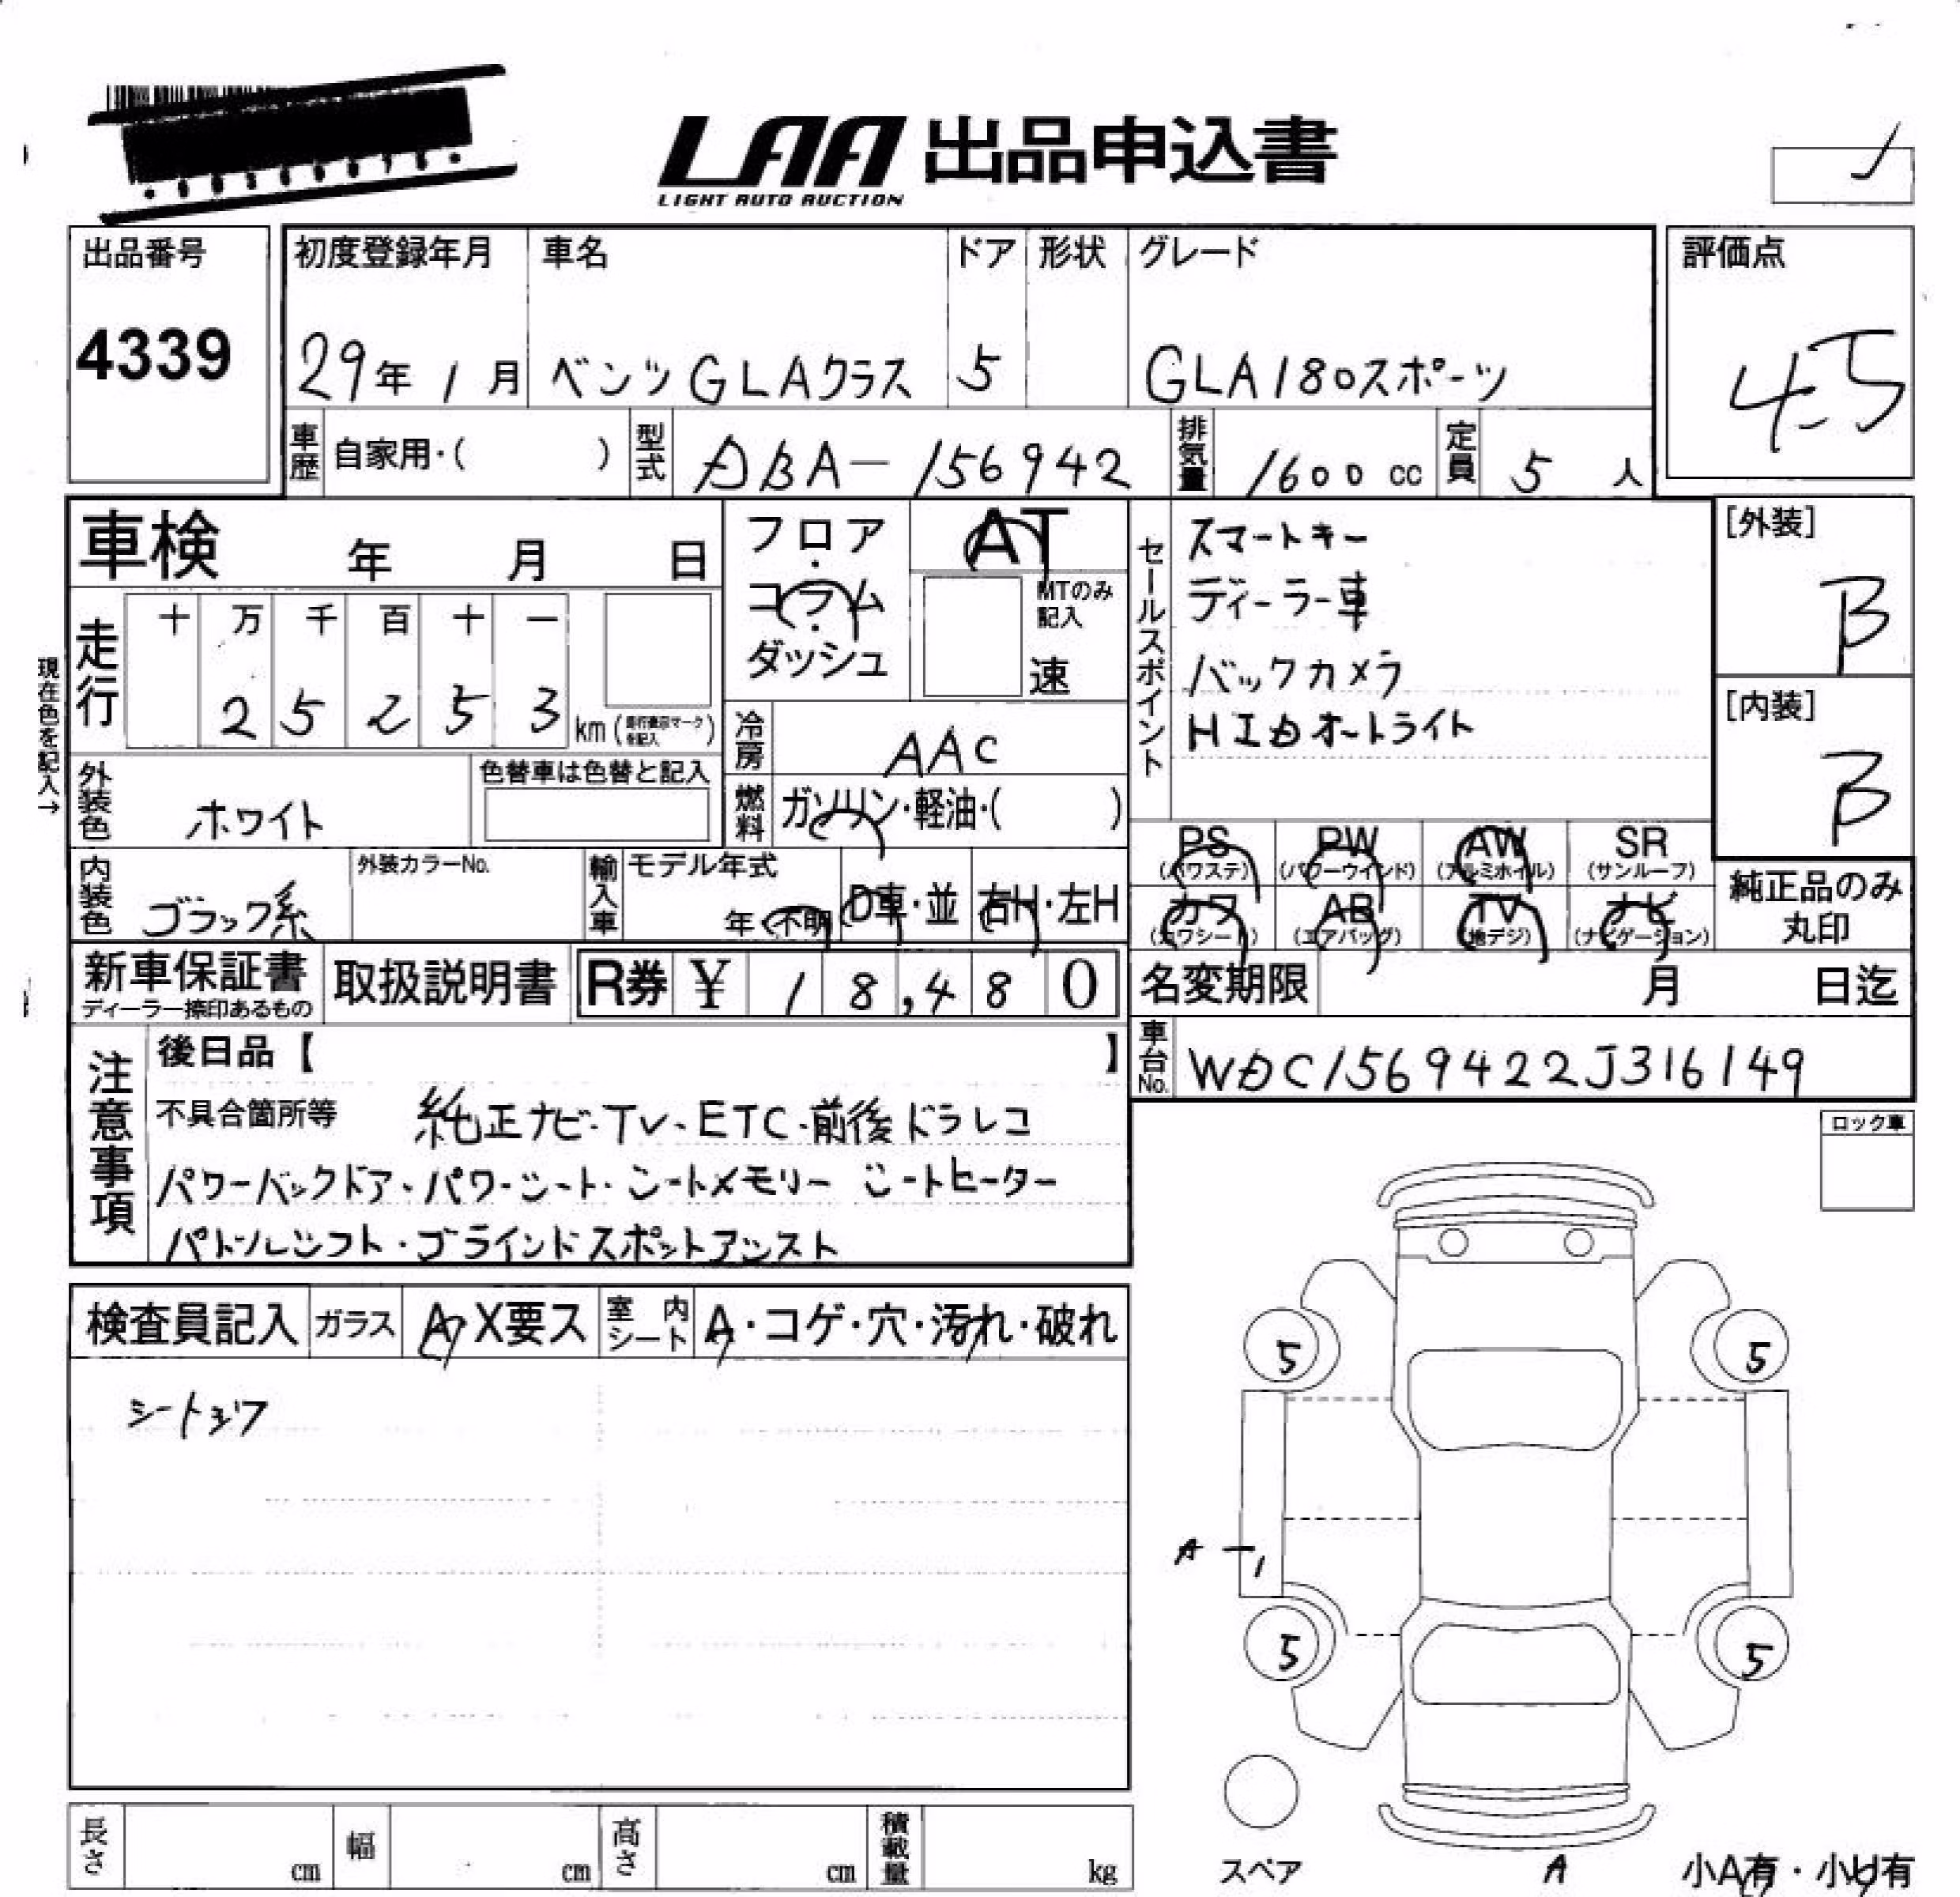 LAA 出品申込書
LIGHT AUTO AUCTION
出品番号
4339
初度登録年月 車名 ドア 形状 グレード
29年 1月 ベンツ GLAクラス 5 GLA180スポーツ
評価点
4.5
車歴 自家用・( ) 型式 DBA-156942 排気量 1600 cc 定員 5 人
車検 年 月 日
フロア・コラム・ダッシュ
AT
MTのみ記入
速
セールスポイント
スマートキー
ディーラー車
バックカメラ
HID オートライト
[外装]
B
[内装]
B
現在色を記入→
走行 十 万 千 百 十 一
2 5 2 5 3 km (走行表示マークを記入)
冷房 AAC
外装色 ホワイト 色替車は色替と記入
燃料 ガソリン・軽油・( )
PS (パワステ) PW (パワーウインド) AW (アルミホイル) SR (サンルーフ)
内装色 ブラック系 外装カラーNo. 輸入車 モデル年式 年・不明 D車・並 右H・左H
カワ (カワシート) AB (エアバッグ) TV (地デジ) ナビ (ナビゲーション)
純正品のみ丸印
新車保証書 ディーラー捺印あるもの 取扱説明書 R券 ¥ 18,480
名変期限 月 日迄
注意事項
後日品【 】
車台No. WDC1569422J316149
不具合箇所等 純正ナビ・TV・ETC・前後ドラレコ
パワーバックドア・パワーシート・シートメモリー シートヒーター
パドルシフト・ブラインドスポットアシスト
ロック車
検査員記入 ガラス A X要ス 室内シート A・コゲ・穴・汚れ・破れ
シートシワ
5 5
A-1
5 5
スペア
A
小A有・小U有
長さ cm 幅 cm 高さ cm 積載量 kg